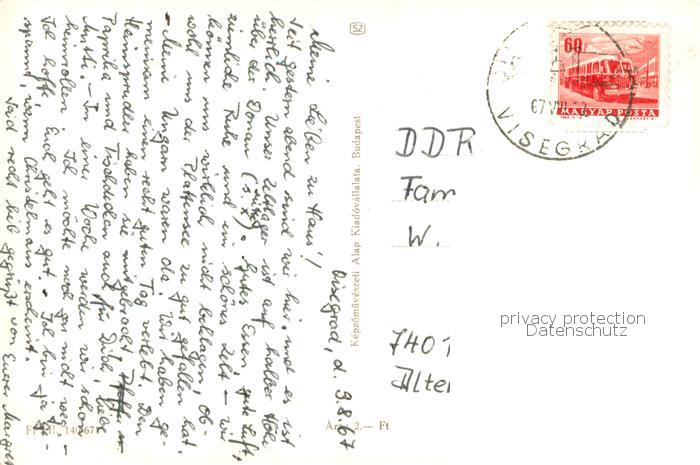 Visegrad, d. 9.8.67
Meine Lieben zu Haus!
Seit gestern abend sind wir hier, und es ist
herrlich. Unser Zeltlager ist auf halber Höhe
über der Donau (s. X). Gutes Essen, gute Luft,
ziemliche Ruhe und ein schönes Zelt – wir
können uns wirklich nicht beklagen, ob-
wohl uns der Plattensee zu gut gefallen hat.
– Meine Ungarn waren da. Wir haben ge-
meinsam einen recht guten Tag verlebt. Den
haben sie mitgebracht
Paprika und Tischdecken auch für Dich, liebe
Mutti. – In einer Woche werden wir schon
heimrollen. Ich möchte noch gar nicht weg. –
Ich hoffe, Euch geht es gut. – Ich bin ja ge-
spannt, wenn Christel mans erscheint.
Seid recht lieb gegrüßt von Eurer Margret
F. VIII. 140/67
Ára: 2.— Ft
Képzőművészeti Alap Kiadóvállalata, Budapest
SZ
60f
MAGYAR POSTA
67 VIII
VISEGRÁD
DDR
Fam
W.
7401
Alten
privacy protection
Datenschutz